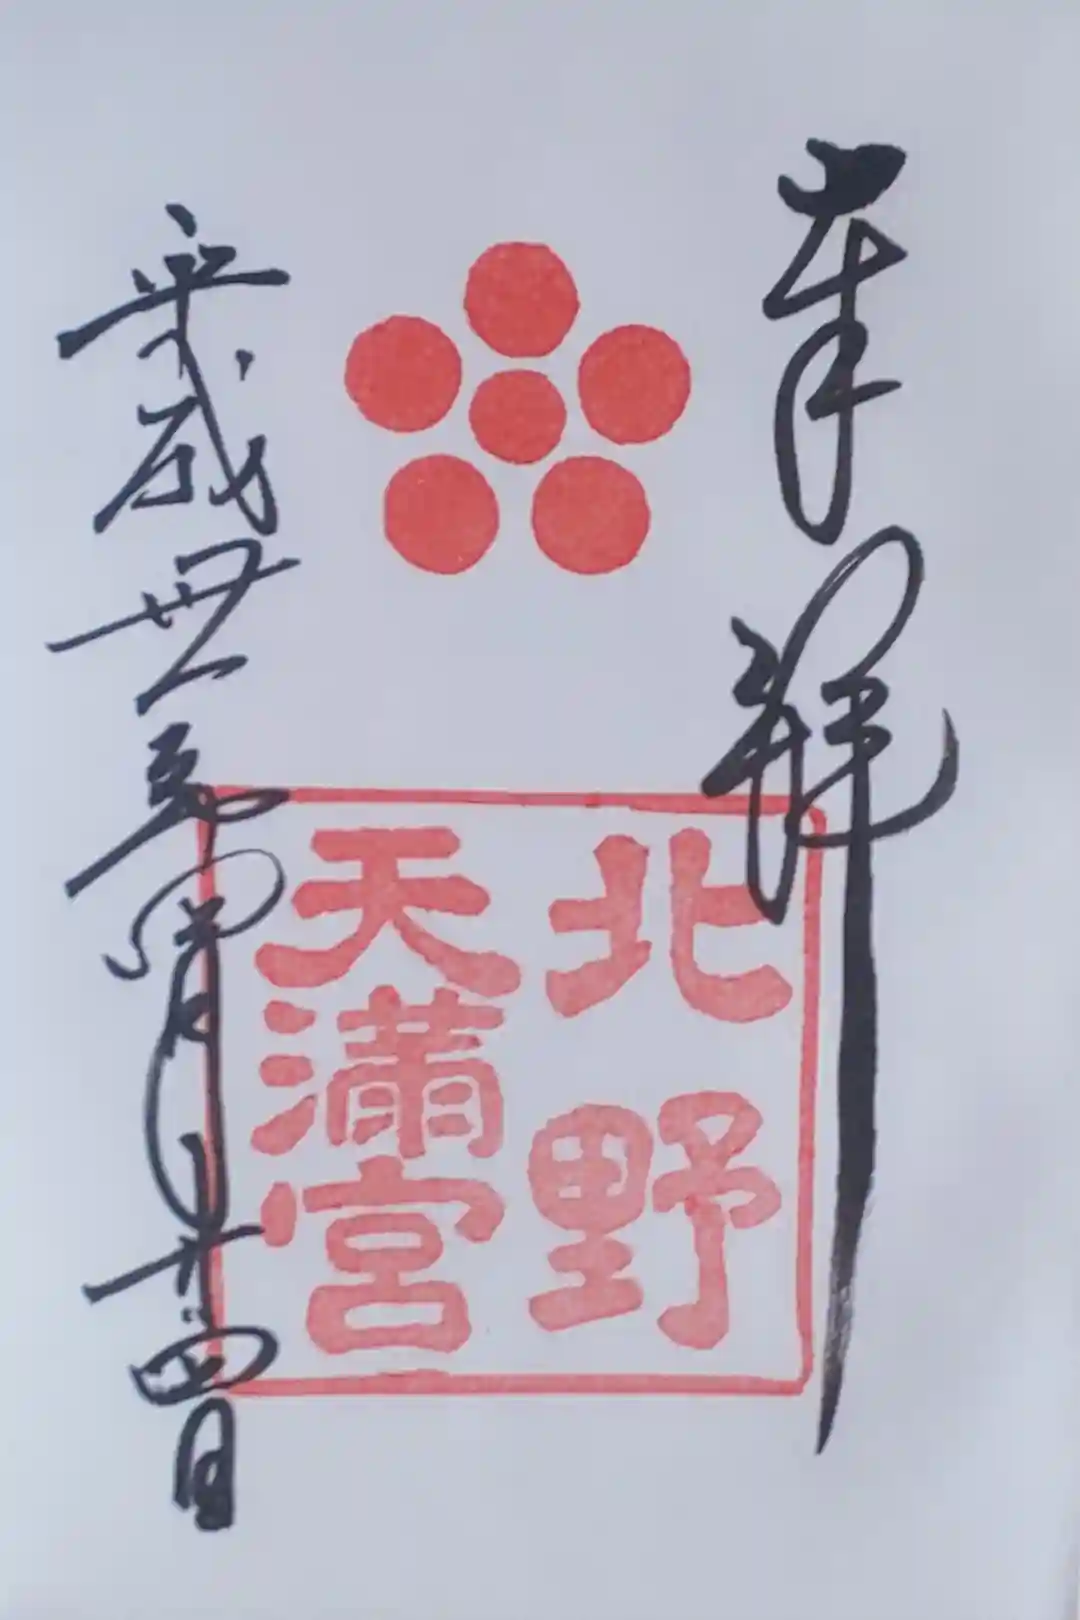 奉拝
北野
天満宮
平成卅一年四月廿四日